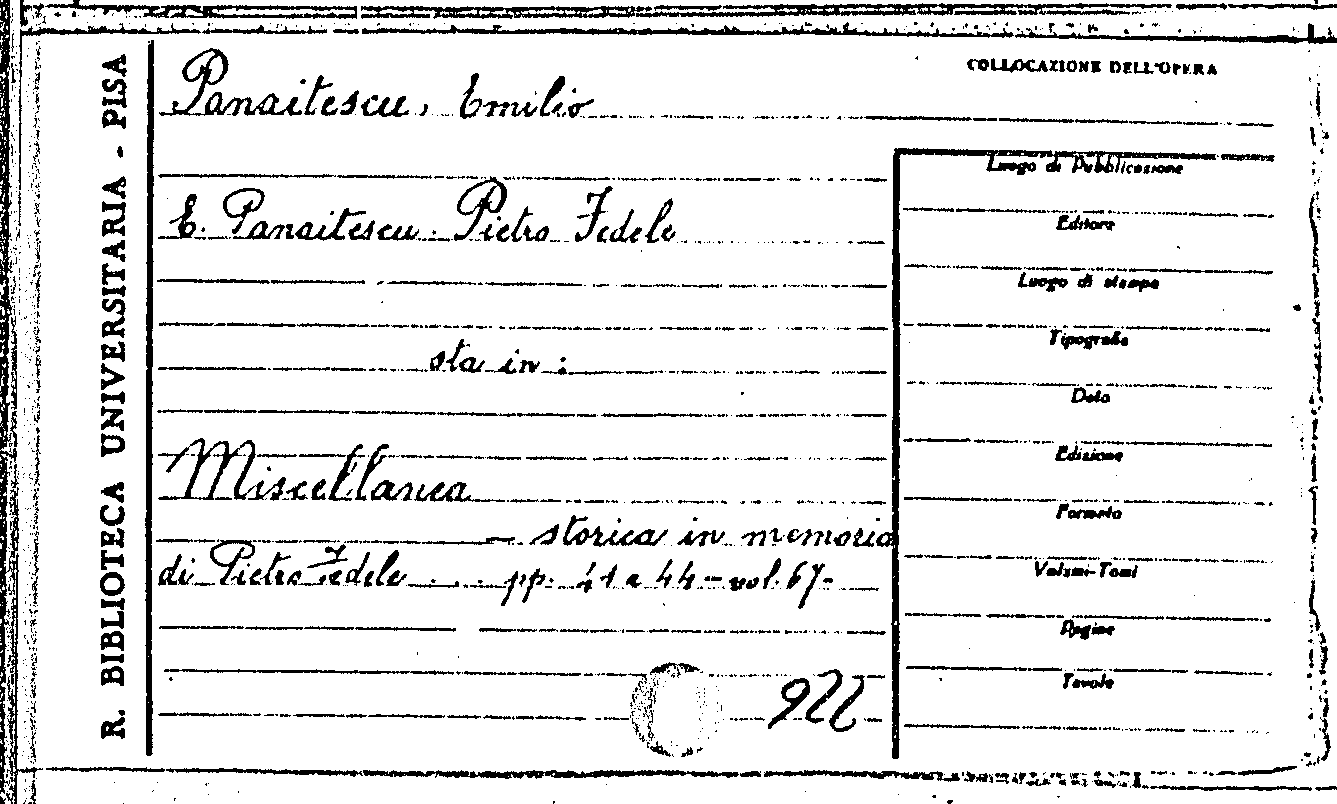 R. BIBLIOTECA UNIVERSITARIA - PISA
COLLOCAZIONE DELL'OPERA
Panaitescu, Emilio
E. Panaitescu. Pietro Fedele
sta in:
Miscellanea
- storica in memoria
di Pietro Fedele . . . pp. 41 a 44 - vol. 67-
922
Luogo di Pubblicazione
Editore
Luogo di stampa
Tipografia
Data
Edizione
Formato
Volumi-Tomi
Pagine
Tavole